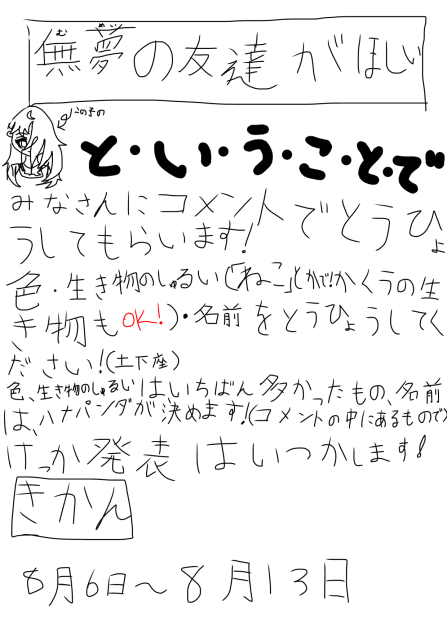 無夢の友達がほしい
むめい
この子の
と・い・う・こ・と・で
みなさんにコメントでとうひょ
うしてもらいます!
色・生き物のしゅるい(「ねこ」とかで!かくうの生
き物もOK!)・名前をとうひょうしてく
ださい!(土下座)
色、生き物のしゅるいはいちばん多かったもの、名前
は、ハナパンダが決めます!(コメントの中にあるもので)
けっか発表はいつかします!
きかん
8月6日〜8月13日